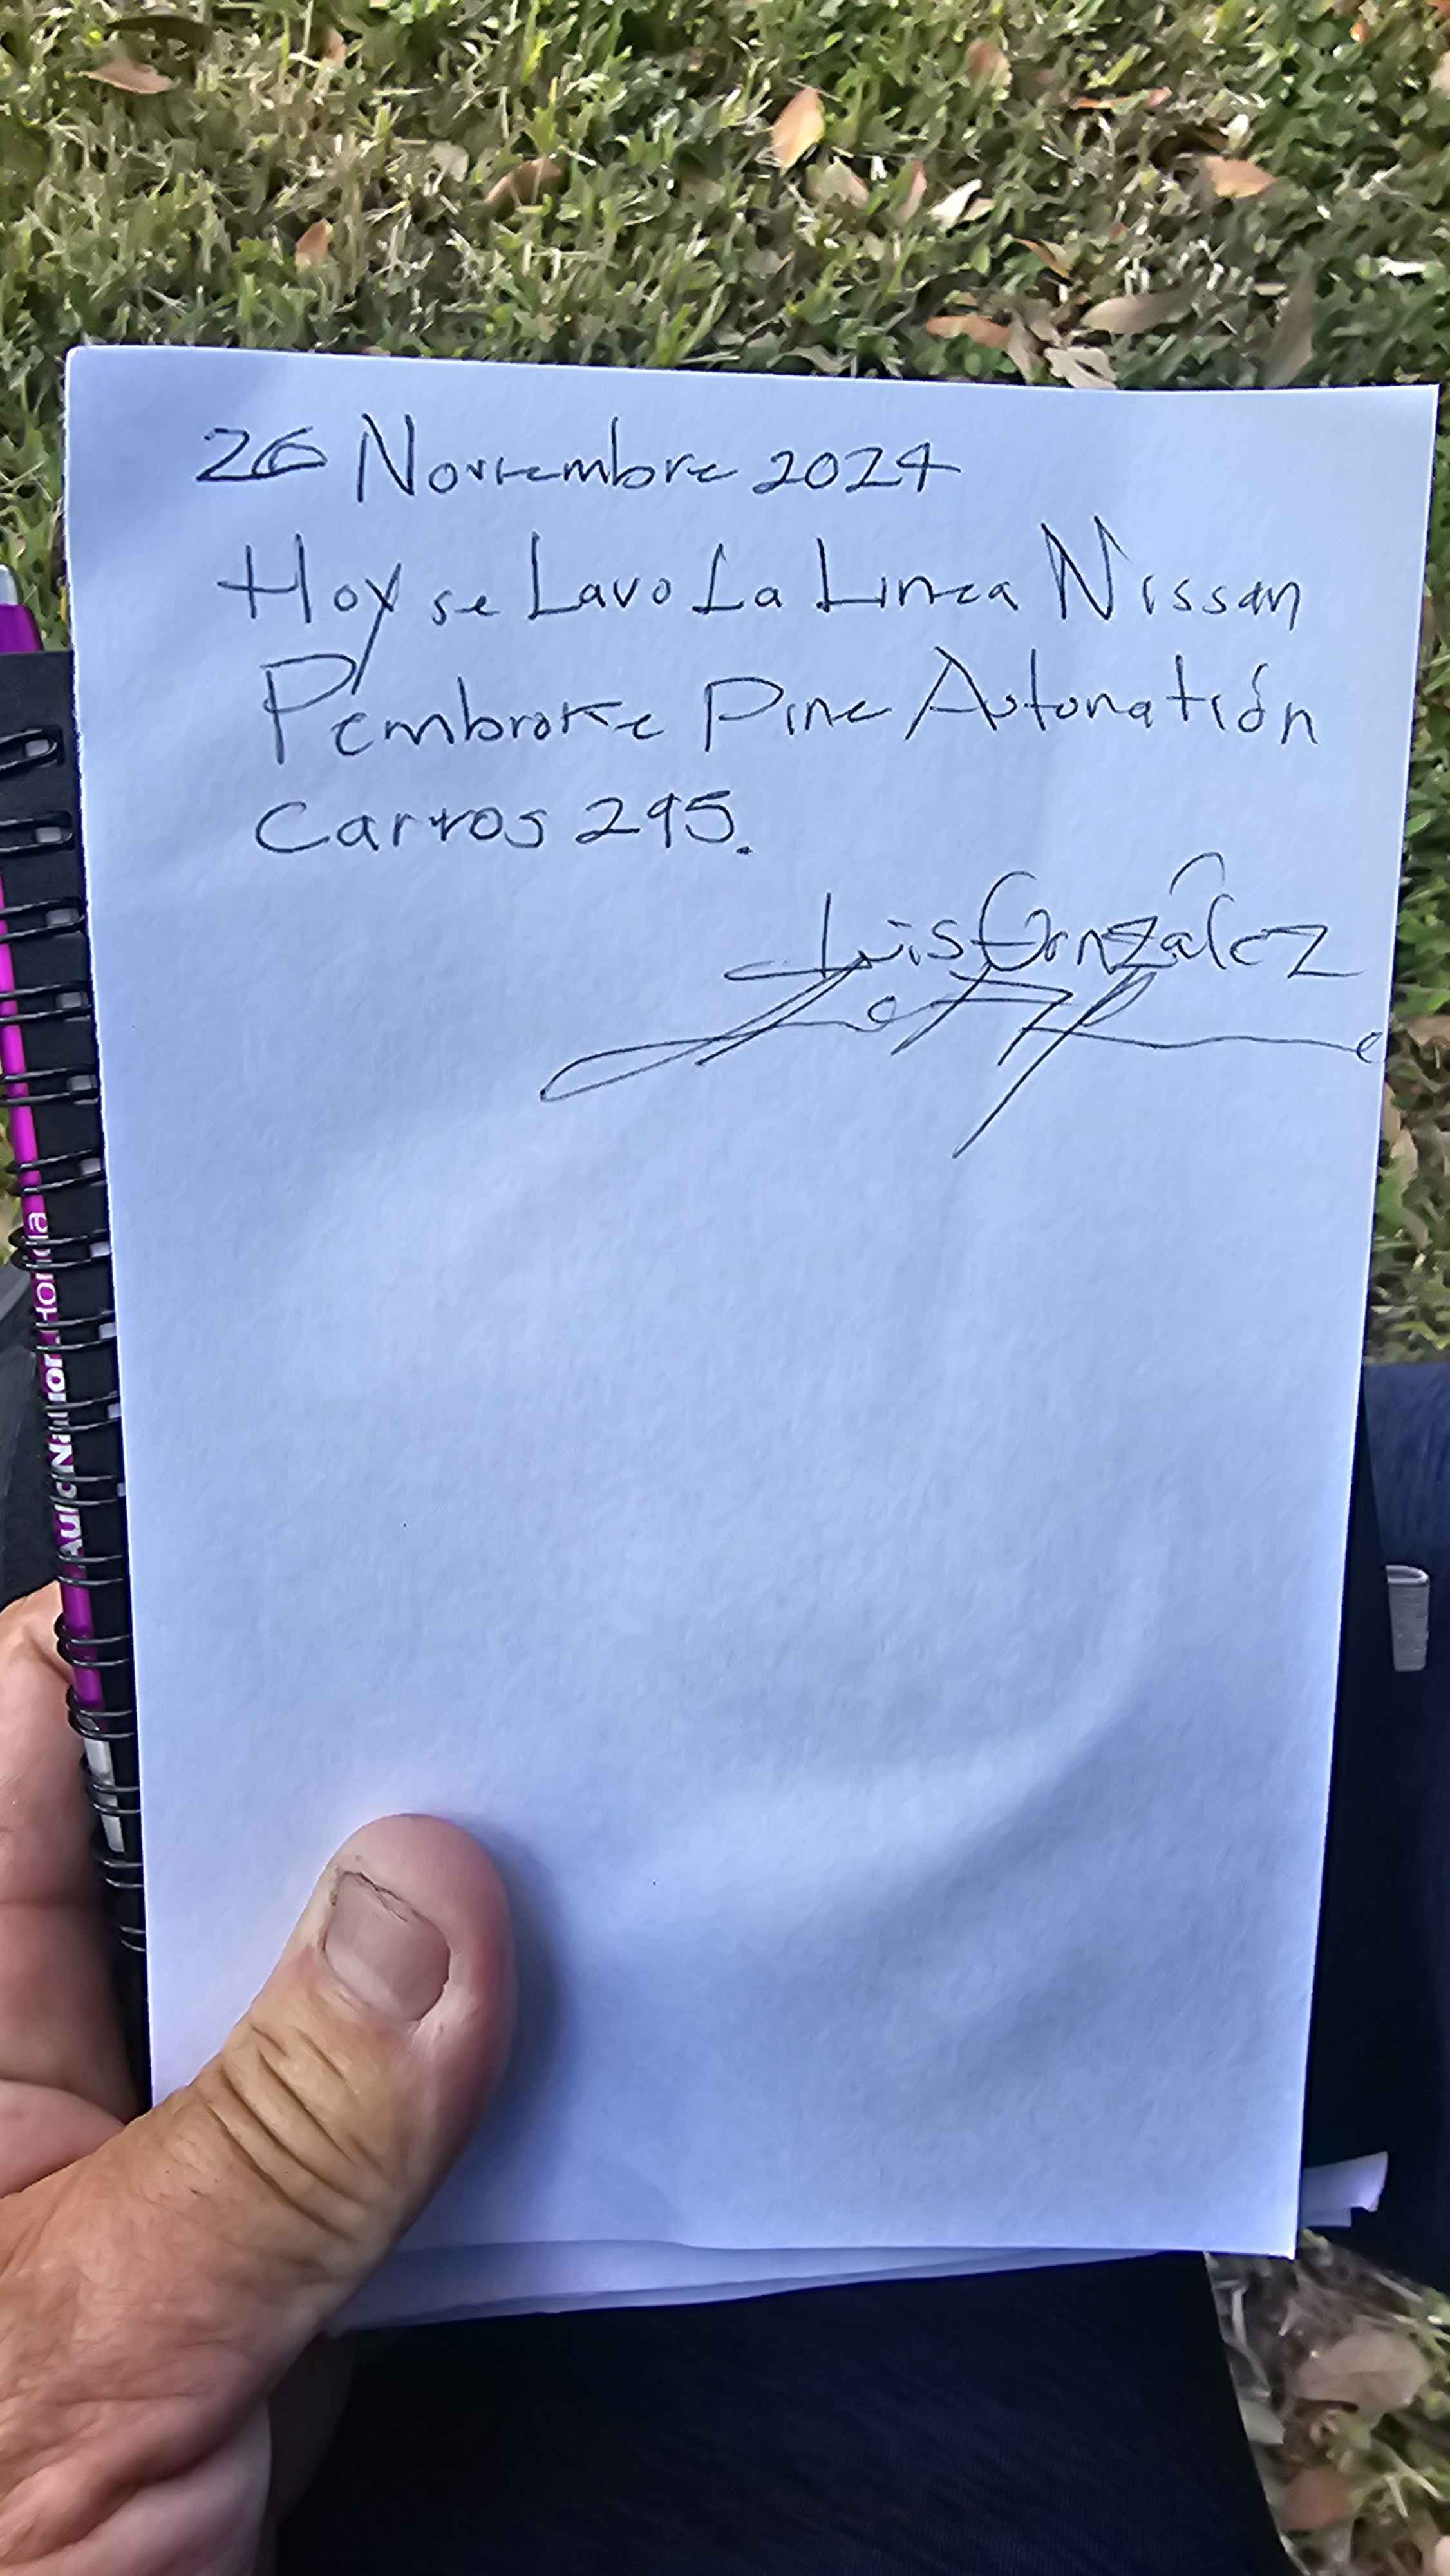 26 Noviembre 2024
Hoy se Lavo La Linea Nissan
Pembroke Pine Autonatión
Carros 295.
Luis González
AutoNation Honda